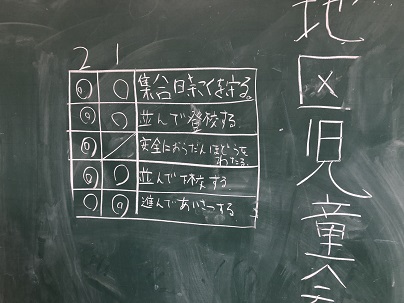 地区児童会
2 1
◎ ○ 集合時こくを守る。
◎ ○ 並んで登校する。
◎ ／ 安全におうだんほどうを
わたる。
◎ ○ 並んで下校する。
○ ◎ 進んであいさつする